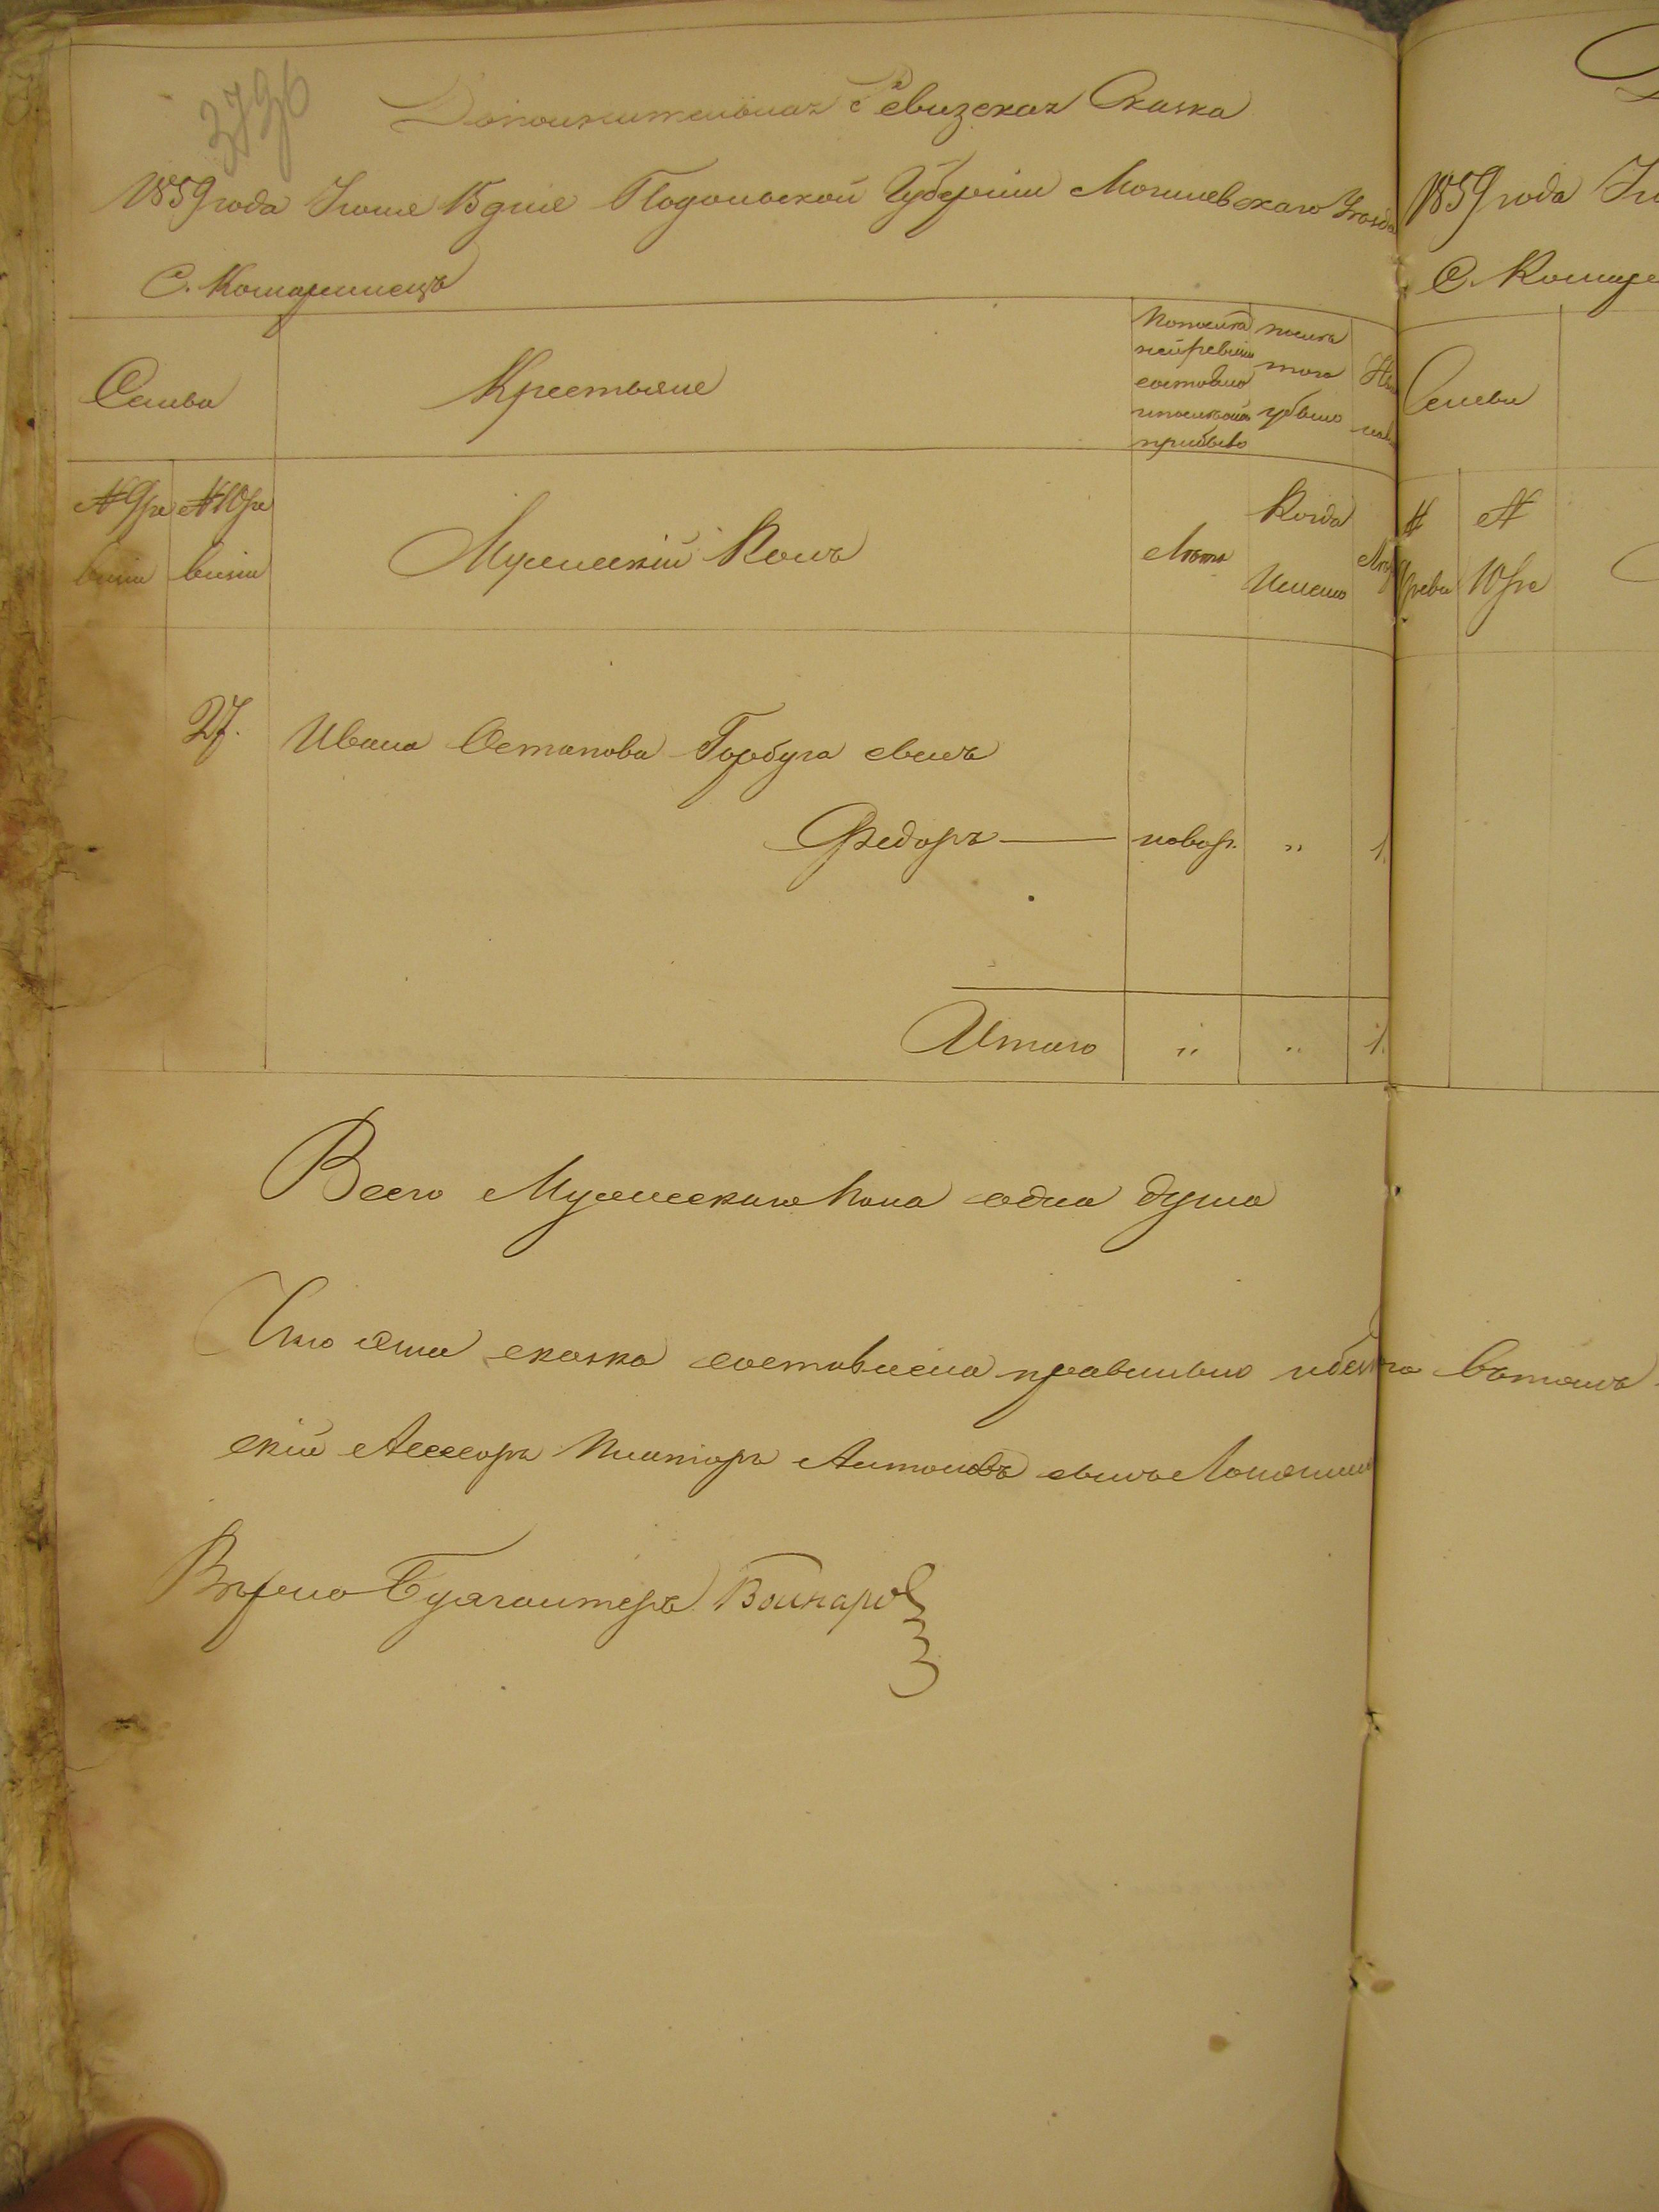 3796
Дополнительная Ревизская Сказка
1859 года Июня 15 дня Подольской Губерніи Могилевскаго Уѣзда
С. Кошаринецъ
Семьи
Крестьяне
По послѣд
ней ревизіи
состояло
и послѣ оной
прибыло
изъ
того
убыло
№ 9 ре
визіи
№ 10 ре
визіи
Мужескій Полъ
Лѣта
Когда
Именно
27.
Ивана Остапова Горбуга сынъ
Федоръ — новор. „ 1.
Итого „ „ 1.
Всего Мужескаго пола одна душа
Что сія сказка составлена правильно
скій Ассесоръ Викторъ Антоновъ сынъ
Вѣрно Бухгалтеръ
1859 года
С. Кошаре
Семьи
№
9 реви
№
10 ре